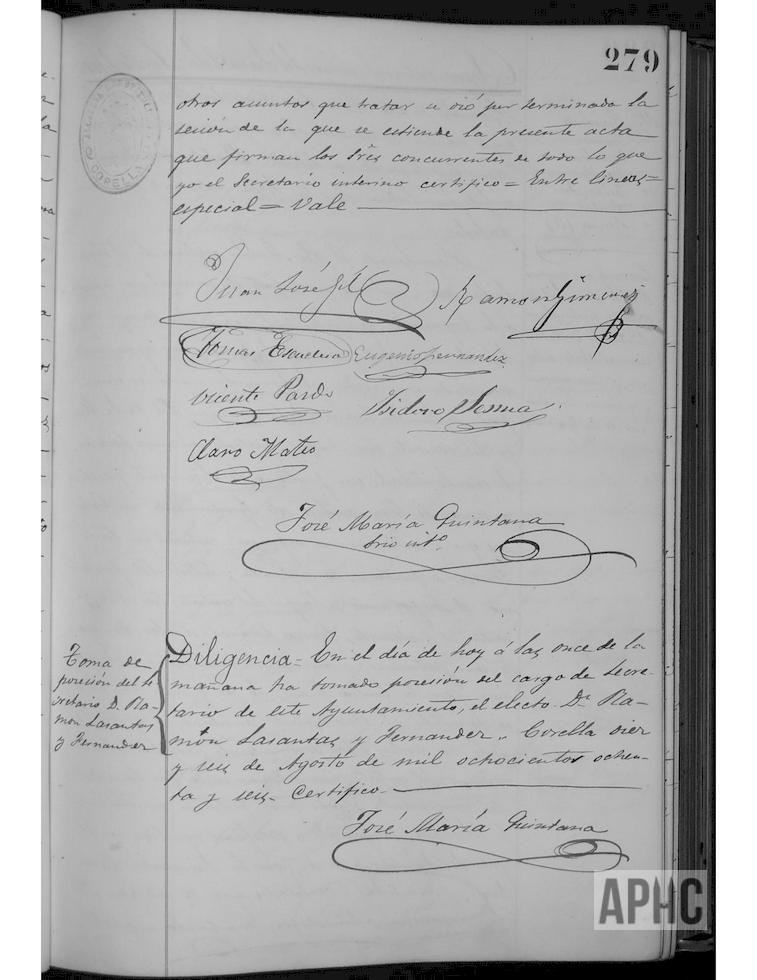 279
otros asuntos que tratar se dió por terminada la
sesión de la que se estiende la presente acta
que firman los Sres. concurrentes de todo lo que
yo el Secretario interino certifico = Entre lineas =
especial = Vale
Juan José Gil
Ramon Gimenez
Tomas Escudero
Eugenio Fernandez
Vicente Pardo
Isidoro Sesma
Claro Mateo
José María Quintana
Srio intº
Toma de
posesión del Se
cretario D. Ra-
mon Lasantas
y Fernandez
Diligencia = En el día de hoy á las once de la
mañana ha tomado posesión del cargo de Secre-
tario de este Ayuntamiento, el electo Dn. Ra-
món Lasantas y Fernandez. Corella diez
y seis de Agosto de mil ochocientos ochen-
ta y seis. Certifico.
José María Quintana
CORELLA
APHC